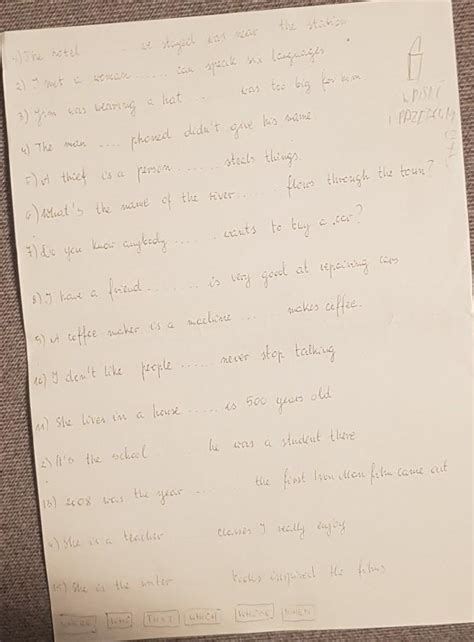 1) The hotel ..... we stayed was near the station
2) I met a woman ...... can speak six languages
3) Jim was wearing a hat .. was too big for him.
4) The man .... phoned didn't give his name.
5) A thief is a person ...... steals things.
6) What's the name of the river ...... flows through the town?
7) Do you know anybody ...... wants to buy a car?
8) I have a friend ....... is very good at repairing cars
9) A coffee maker is a machine ... makes coffee.
10) I don't like people ..... never stop talking
11) She lives in a house ..... is 500 years old
12) It's the school he was a student there
13) 2008 was the year .. the first Iron Man film came out
14) She is a teacher classes I really enjoy
15) She is the writer books inspired the films
WHO THAT WHICH WHOSE WHEN